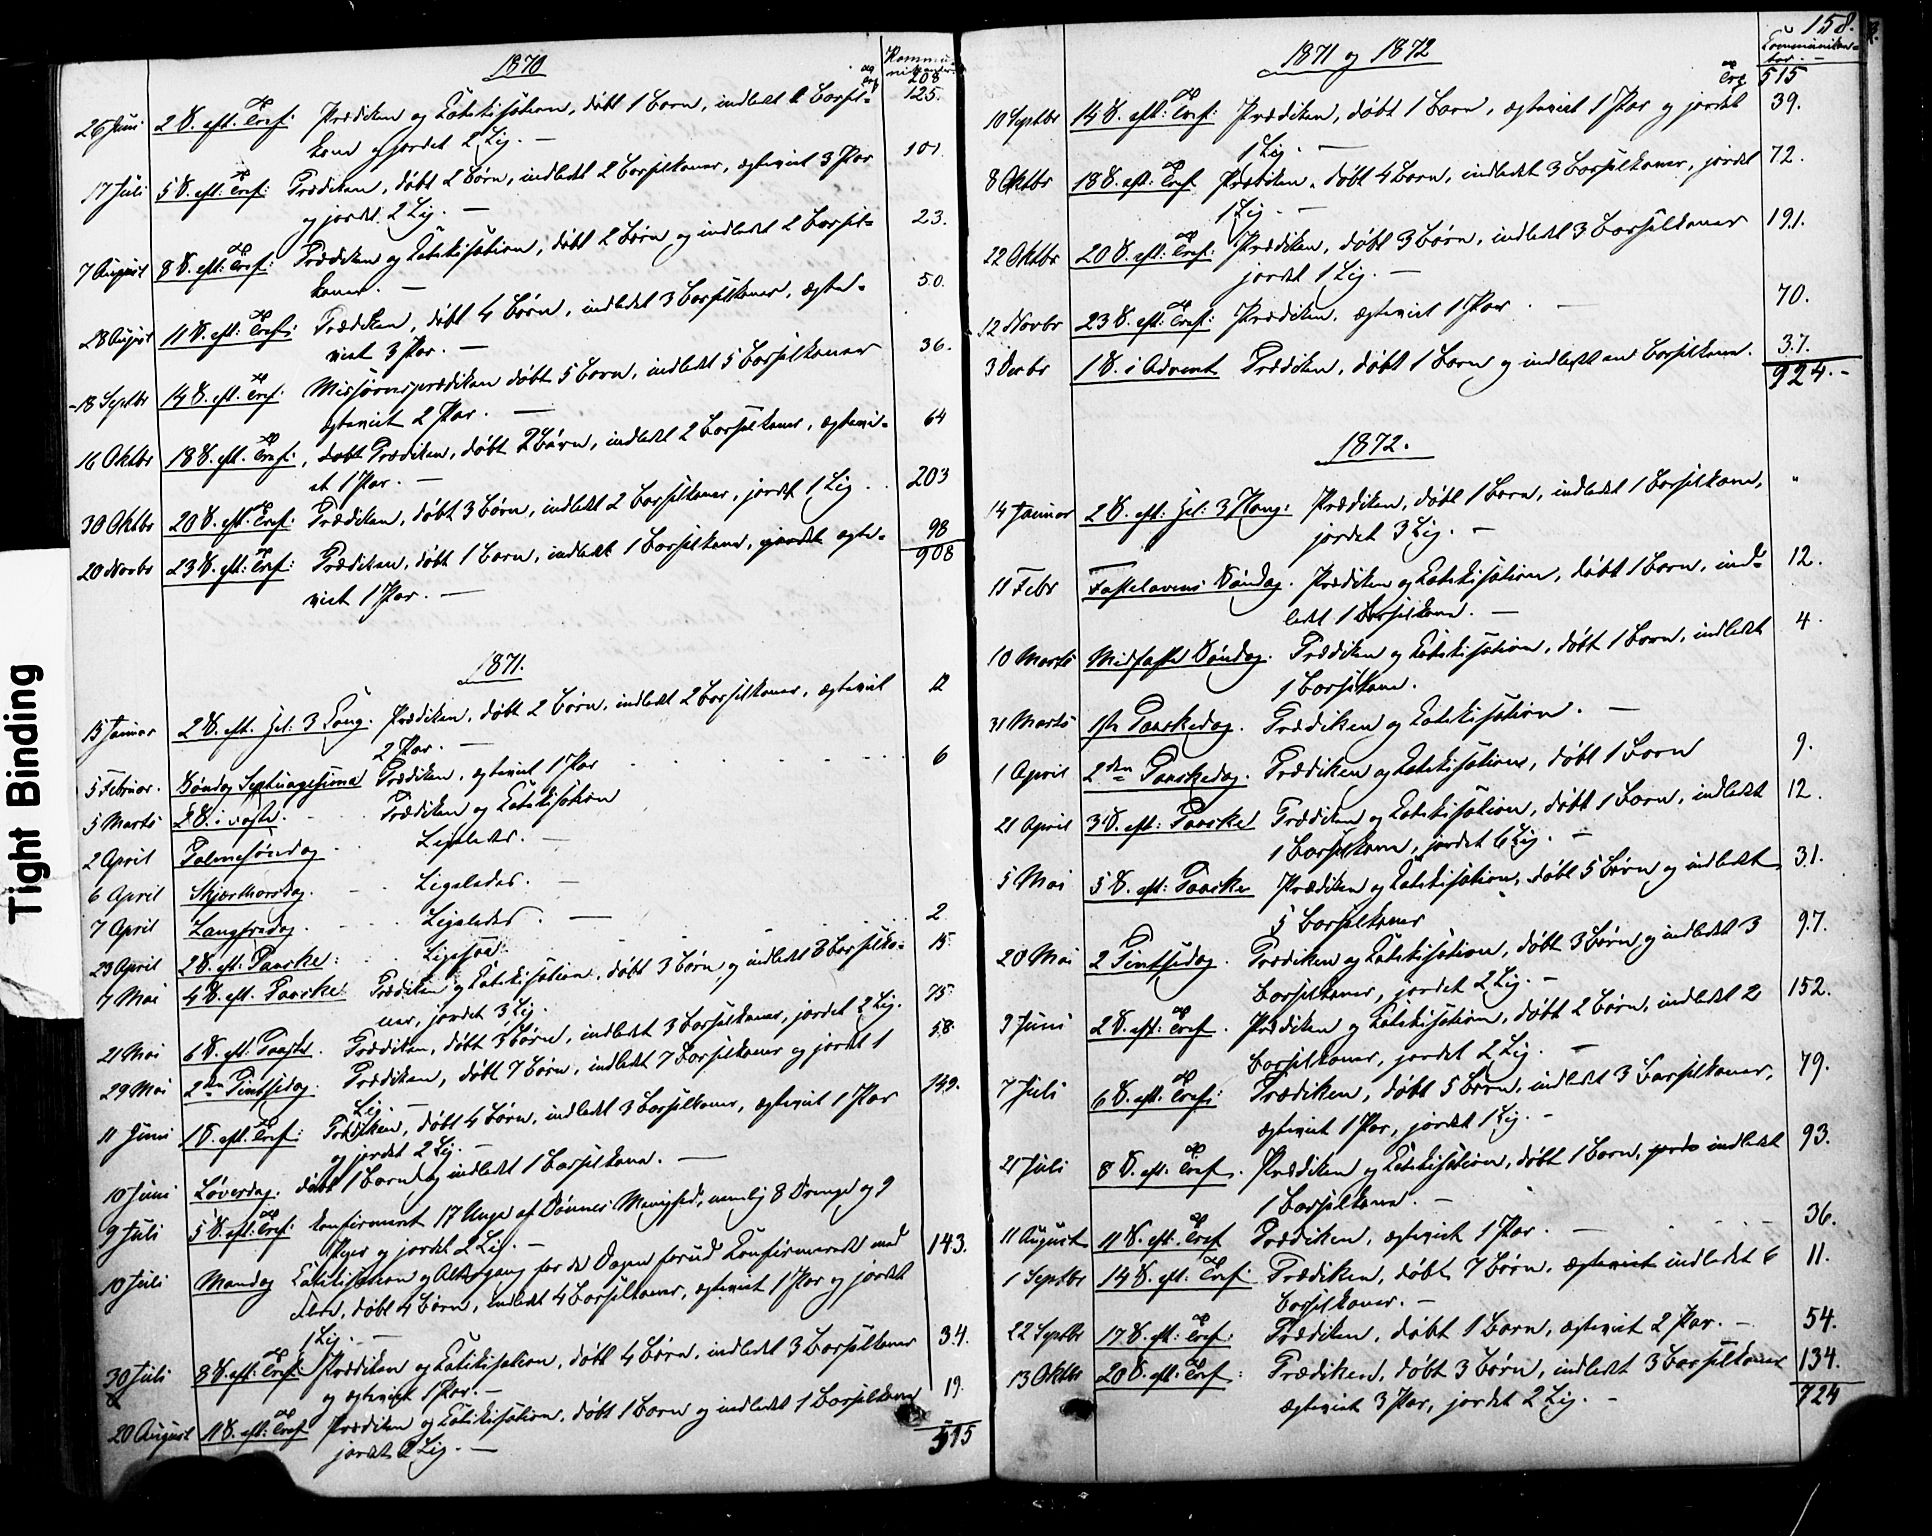 Tight Binding
1870
Kommu-
nikanter
og Trf 208
26 Juni 2 S. eft. Tref: Prædiken og Katekisation, døbt 1 Barn, indledt 1 Barsel- 125.
kone og jordet 2 Lig. —
17 Juli 5 S. eft. Tref: Prædiken, døbt 2 Børn, indledt 2 Barselkoner, ægteviet 3 Par 101.
og jordet 2 Lig. —
7 August 8 S. eft: Tref: Prædiken og Katekisation, døbt 2 Børn og indledt 2 Barsel- 23.
koner. —
28 August 11 S. eft: Tref: Prædiken, døbt 4 Børn, indledet 3 Barselkoner, ægte- 50.
viet 3 Par. —
18 Septbr 14 S. eft. Tref: Missionsprædiken døbt 5 Børn, indledt 5 Barselkoner 36.
ægteviet 2 Par. —
16 Oktbr 18 S. eft. Tref:, døbt Prædiken, døbt 2 Børn, indledt 2 Barselkoner, ægtevi- 64
et 1 Par. —
30 Oktbr 20 S. eft. Tref: Prædiken, døbt 3 Børn, indledt 2 Barselkoner, jordet 1 Lig . . 203
20 Novbr 23 S. eft. Tref: Prædiken, døbt 1 Barn, indledt 1 Barselkone, jordet ægte- 98
viet 1 Par. — 908
1871.
15 Januar 2 S. eft. Hel: 3 Kong. Prædiken, døbt 2 Børn, indledt 2 Barselkoner, ægteviet 12
2 Par. —
5 Februar. Søndag Septuagesima Prædiken, ægteviet 1 Par 6
5 Marts 2 S. i Faste. Prædiken og Katekisation
2 April Palmesøndag Ligeledes. —
6 April Skjærthorsdag. Ligeledes. —
7 April Langfredag. Ligeledes. — 2
23 April 2 S. eft: Paaske: Ligesaa: 15
7 Mai 4 S. eft. Paaske: Prædiken og Katekisation, døbt 3 Børn og indledt 3 Barselko- 75
ner, jordet 3 Lig.
21 Mai 6 S. eft. Paaske. Prædiken, døbt 3 Børn, indledt 3 Barselkoner, jordet 2 Lig. 58.
29 Mai 2den Pintsedag. Prædiken, døbt 7 Børn, indledt 7 Barselkoner og jordet 1
Lig. — 149.
11 Juni 1 S. eft. Tref: Prædiken, døbt 4 Børn, indledt 3 Barselkoner, ægteviet 1 Par
og jordet 2 Lig. —
10 Juni Løverdag. døbt 1 Barn og indledt 1 Barselkone. —
9 Juli 5 S. eft. Tref: konfirmeret 17 Unge af Dønnes Menighed, nemlig 8 Drenge og 9
Piger og jordet 2 Lig. —
10 Juli Mandag Katekisation og Altergang for de Dagen forud Konfirmerede med 143.
Flere, døbt 4 Børn, indledt 4 Barselkoner, ægteviet 1 Par og jordet
1 Lig. —
30 Juli 8 S. eft. Tref: Prædiken og Katekisation, døbt 4 Børn, indledet 3 Barselkoner 34.
og ægteviet 1 Par. —
20 August 11 S. eft: Tref Prædiken og Katekisation, døbt 1 Barn og indledt 1 Barselkone 19.
jordet 2 Lig. — 515
158.
1871 og 1872
Communikan-
ter. —
og Trf 515
10 Septbr 14 S. eft: Tref: Prædiken, døbt 1 Barn, ægteviet 1 Par og jordet 39.
1 Lig. —
8 Oktbr 18 S. eft: Tref Prædiken, døbt 4 Børn, indledt 3 Barselkoner, jordet 72.
1 Lig. —
22 Oktbr 20 S. eft: Tref: Prædiken, døbt 3 Børn, indledt 3 Barselkoner 191.
jordet 1 Lig. —
12 Novbr 23 S. eft: Tref: Prædiken, ægteviet 1 Par . — 70.
3 Decbr 1 S. i Advent Prædiken, døbt 1 Barn og indledt en Barselkone. 37.
924. -
1872.
14 Januar 2 S. eft: Hel: 3 Kong: Prædiken, døbt 1 Barn, indledt 1 Barselkone, "
jordet 3 Lig. —
11 Febr Fastelavens Søndag. Prædiken og Katekisation, døbt 1 Barn, ind- 12.
ledt 1 Barselkone. —
10 Marts Midfaste Søndag. Prædiken og Katekisation, døbt 1 Barn, indledt 4.
1 Barselkone.
31 Marts 1ste Paaskedag. Prædiken og Katekisation. —
1 April 2den Paaskedag. Prædiken og Katekisation, døbt 1 Barn 9.
21 April 3 S. eft: Paaske Prædiken og Katekisation, døbt 1 Barn, indledt 12.
1 Barselkone, jordet 6 Lig. —
5 Mai 5 S. eft: Paaske Prædiken og Katekisation, døbt 5 Børn og indledt 31.
5 Barselkoner
20 Mai 2 Pintsedag. Prædiken og Katekisation, døbt 3 Børn og indledet 3 97.
Barselkoner, jordet 2 Lig. —
9 Juni 2 S. eft: Tref. Prædiken og Katekisation, døbt 2 Børn, indledt 2 152.
Barselkoner, jordet 2 Lig. —
7 Juli 6 S. eft: Tref: Prædiken, døbt 5 Børn, indledt 3 Barselkoner, 79.
ægteviet 1 Par, jordet 1 Lig. —
21 Juli 8 S. eft. Tref. Prædiken og Katekisation, døbt 1 Barn, jorde indledt 93.
1 Barselkone. —
11 August 11 S. eft. Tref Prædiken, ægteviet 1 Par. — 36.
1 Septbr 14 S. eft. Tref: Prædiken, døbt 7 Børn, ægteviet indledet 6 11.
Barselkoner. —
22 Septbr 17 S. eft: Tref: Prædiken, døbt 1 Barn, ægteviet 2 Par. — 54.
13 Oktbr 20 S. eft. Tref: Prædiken, døbt 3 Børn, indledt 3 Barselkoner 134.
ægteviet 3 Par, jordet 2 Lig. — 724